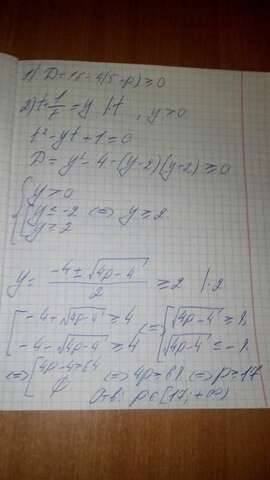 1) D=16-4(5-p)≥0
2) t+1/t=y |·t , y>0
t²-yt+1=0
D=y²-4=(y-2)(y+2)≥0
{ y>0
[ y≤-2 ⇔ y≥2.
y≥2
y= (-4±√(4p-4))/2 ≥2 |·2
[ -4+√(4p-4)≥4 ⇔ [ √(4p-4)≥8,
-4-√(4p-4)≥4 √(4p-4)≤-8
⇔ [ 4p-4≥64 ⇔ 4p≥68 ⇔ p≥17
∅
Отв: p∈[17;+∞)